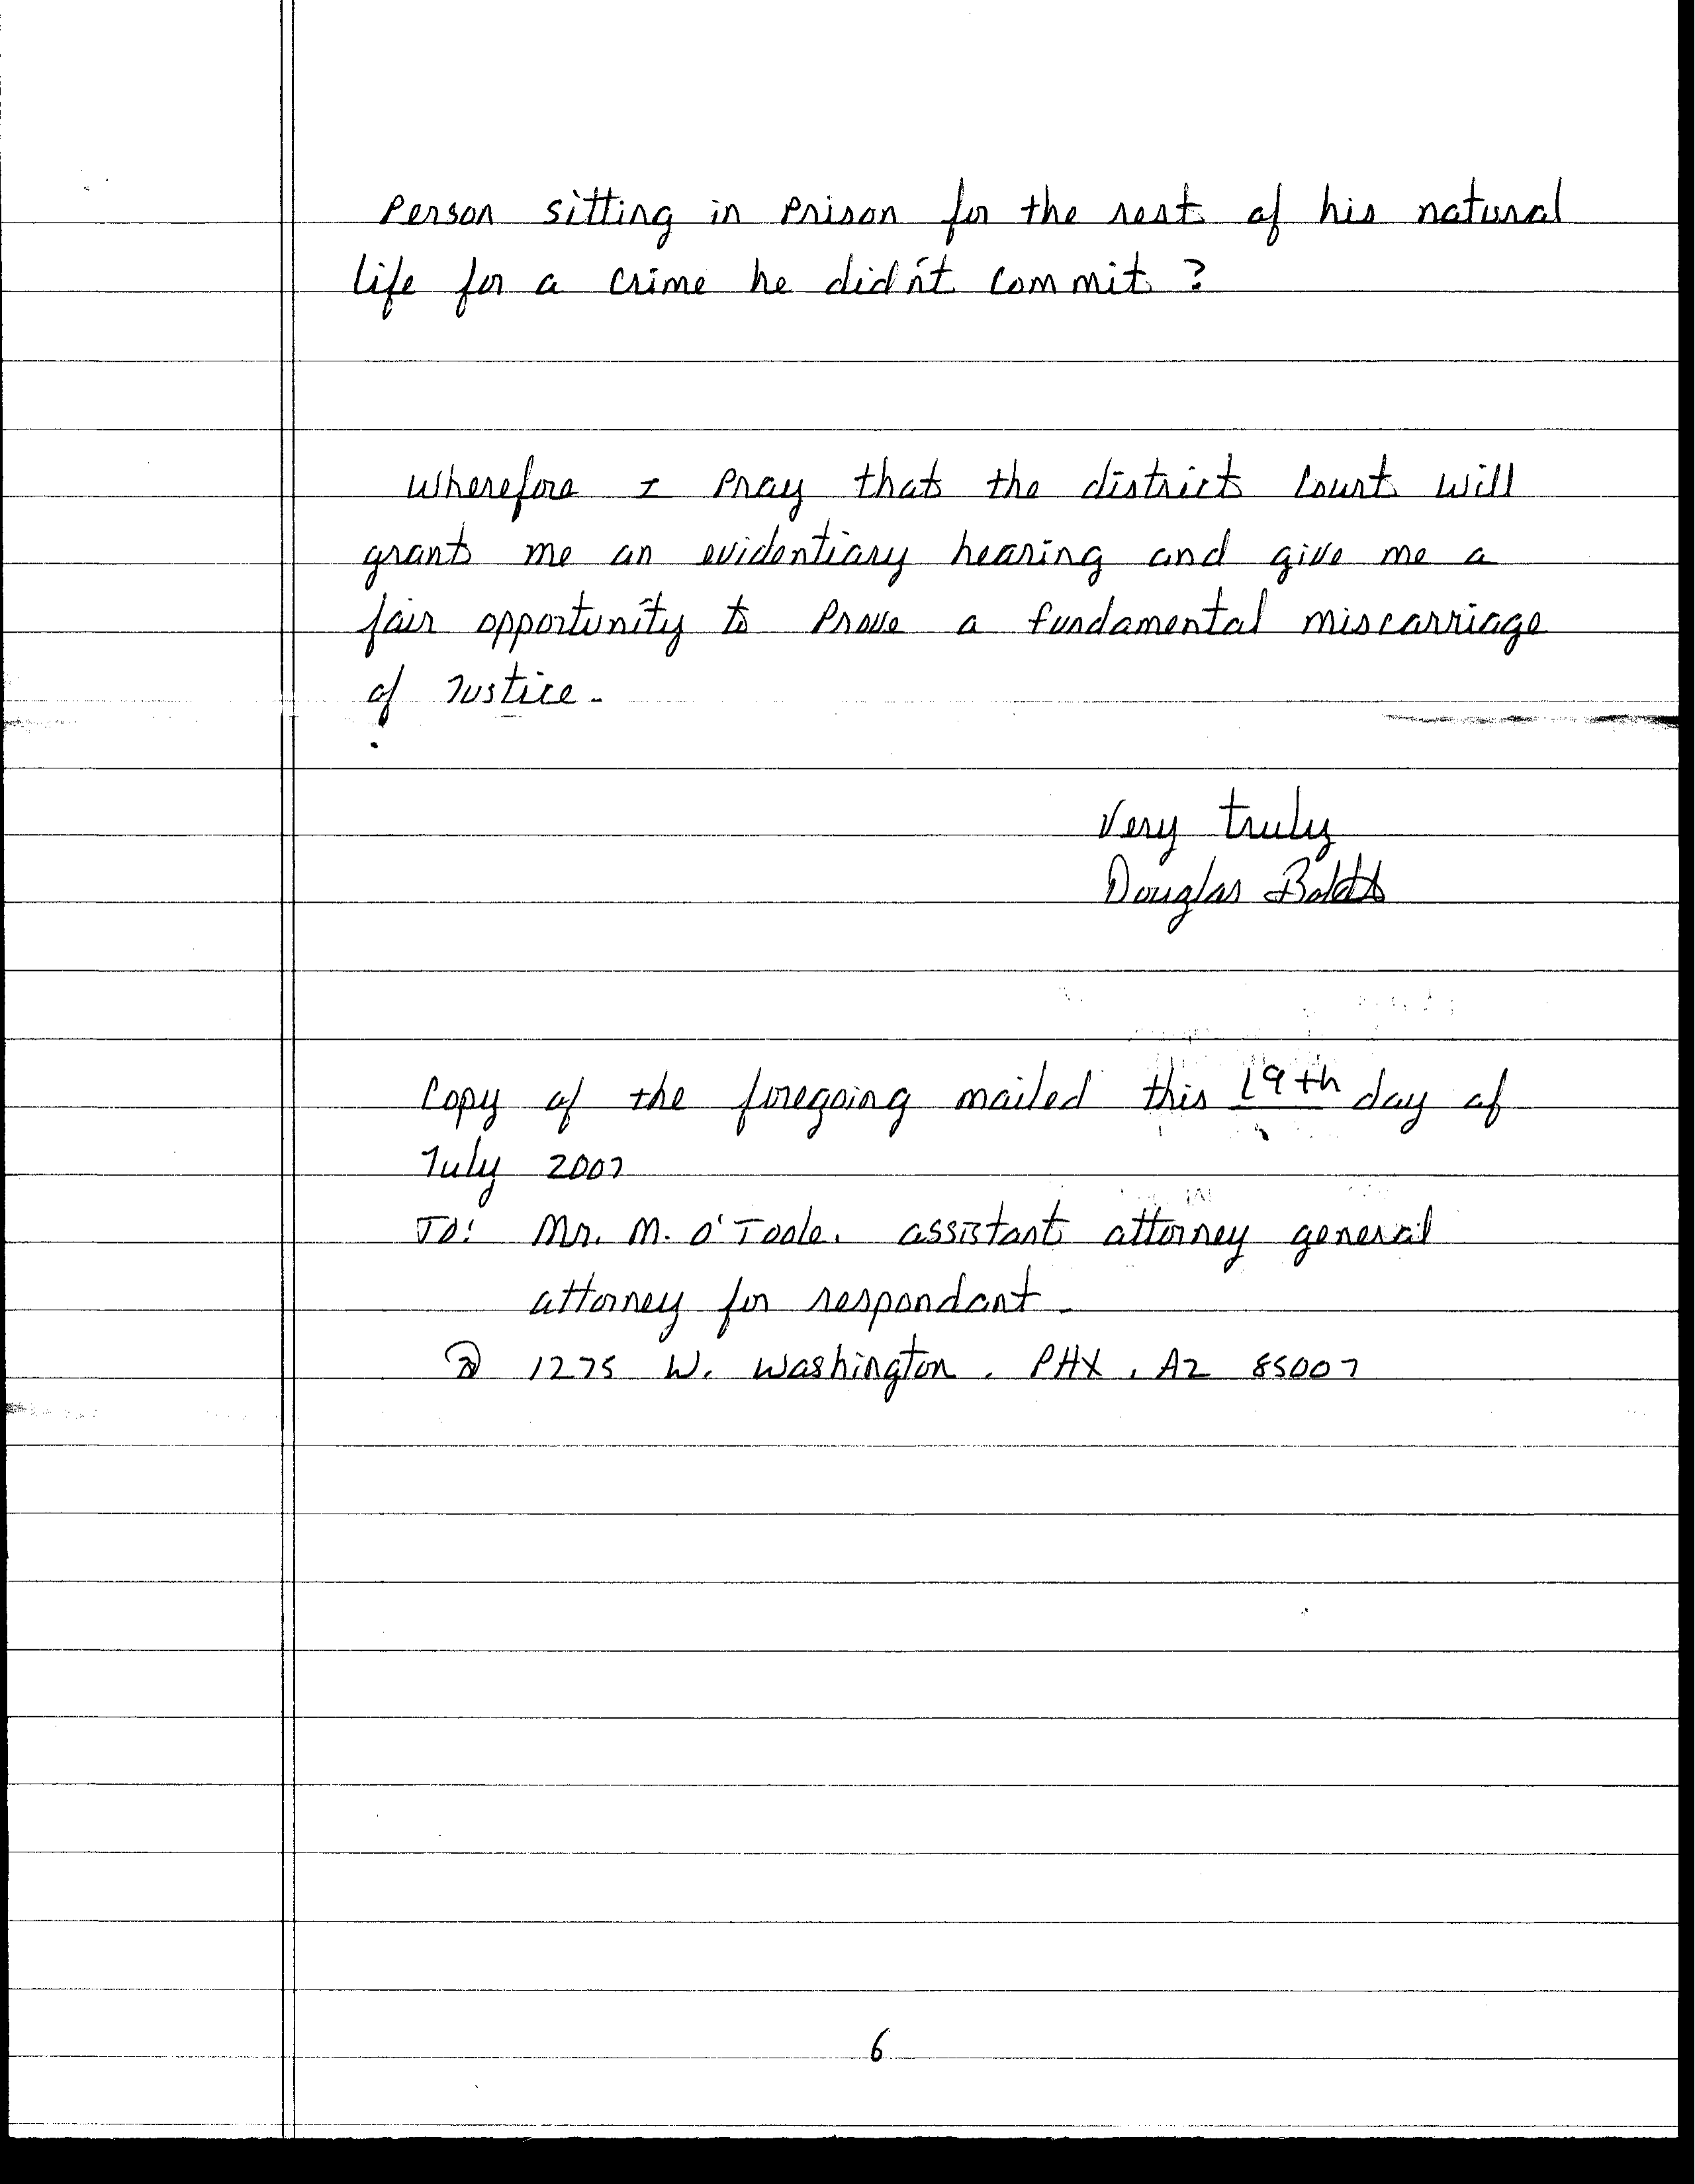 Person sitting in Prison for the rest of his natural
life for a crime he did'nt commit ?
Wherefore I Pray that the district Court will
grant me an evidentiary hearing and give me a
fair opportunity to Prove a fundamental miscarriage
of Justice.
Very truly
Douglas Boldt
Copy of the foregoing mailed this 19th day of
July 2007
TO: Mr. M. O'Toole. assistant attorney general
attorney for respondant.
@ 1275 W. Washington. PHX, AZ 85007
6